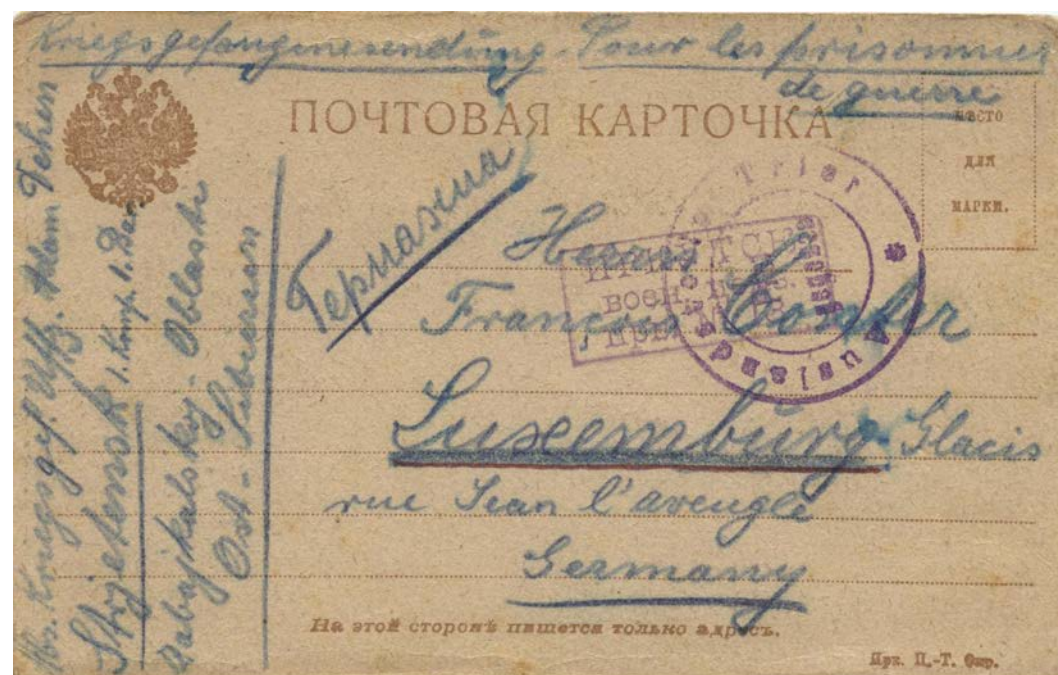 Kriegsgefangenesendung. Pour les prisonnier
de guerre
ПОЧТОВАЯ КАРТОЧКА
МѢСТО
ДЛЯ
МАРКИ.
Германия
Herrn
François Conter
Luxemburg-Glacis
rue Jean l'aveugle
Germany
На этой сторонѣ пишется только адресъ.
Ирк. П.-Т. Окр.
Abs. Kriegsgef. Uffz. Adam
Strjetensk 1. Komp. 1. Bar.
Sabajkalskoj-Oblasti
Ost-Sibirien
Trier
Ausland
ИРКУТСК
ВОЕН.